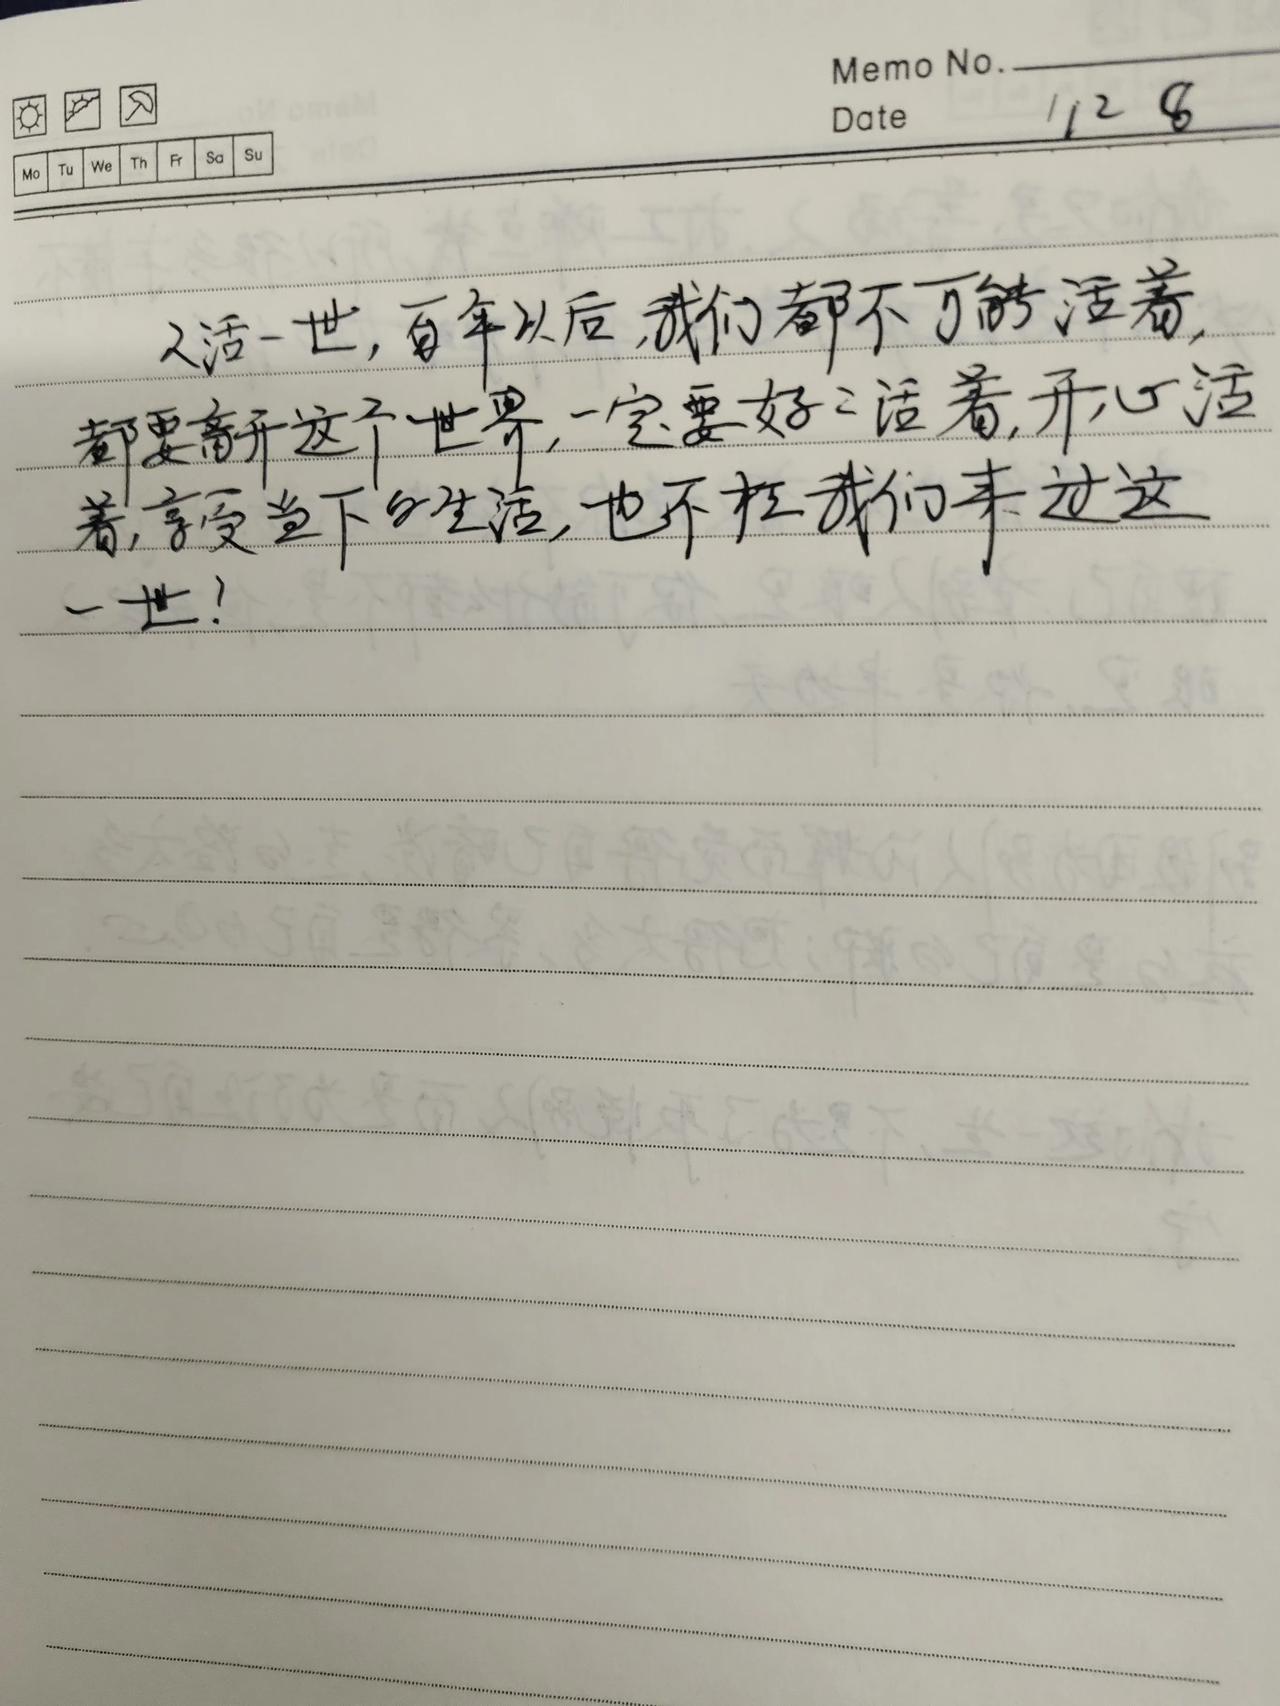 Memo No.
Date 1,28
Mo Tu We Th Fr Sa Su
人活一世,百年以后,我们都不可能活着,
都要离开这个世界,一定要好二活着,开心活
着,享受当下的生活,也不枉我们来过这
一世!